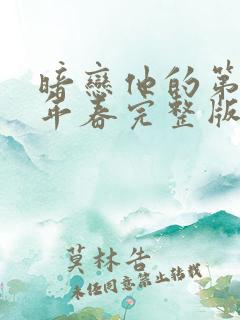 暗戀他的第
年春完整版
莫林告
未经同意禁止转载